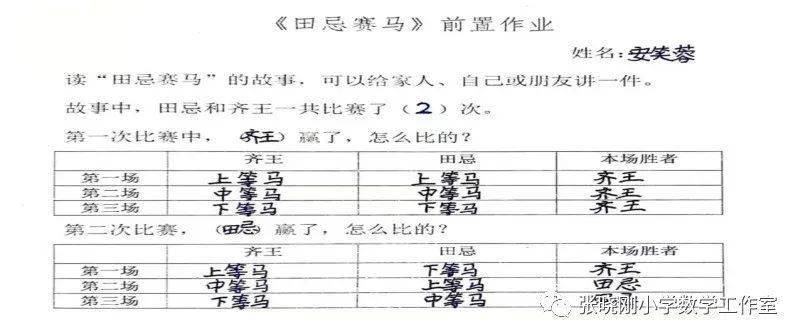 《田忌赛马》前置作业
姓名：安笑蓉
读“田忌赛马”的故事，可以给家人、自己或朋友讲一件。
故事中，田忌和齐王一共比赛了（2）次。
第一次比赛中，（齐王）赢了，怎么比的？
齐王 田忌 本场胜者
第一场 上等马 上等马 齐王
第二场 中等马 中等马 齐王
第三场 下等马 下等马 齐王
第二次比赛，（田忌）赢了，怎么比的？
齐王 田忌 本场胜者
第一场 上等马 下等马 齐王
第二场 中等马 上等马 田忌
第三场 下等马 中等马
张晓刚小学数学工作室